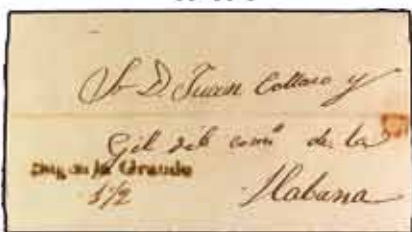 Sr D Juan Collaro y
Gil del comº de la
Sagua la Grande
1/2
Habana